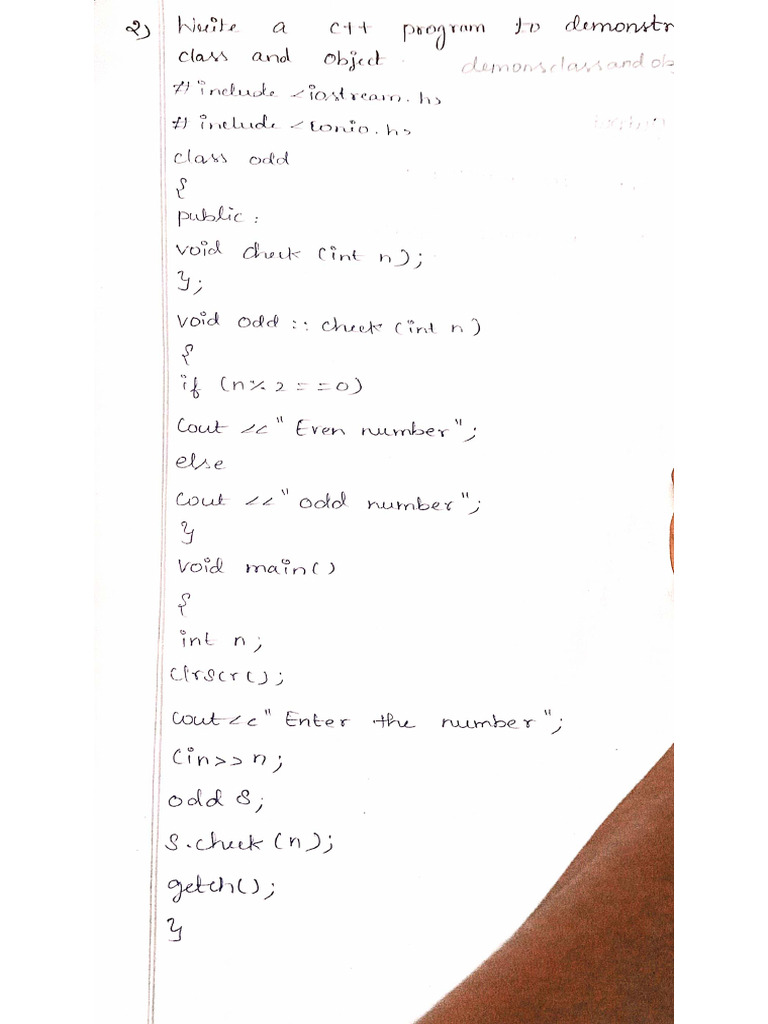 2) Write a C++ program to demonstr
class and object. demonsclassandob
#include <iostream.h>
#include <conio.h>
class odd
{
public:
void check (int n);
};
void odd :: check (int n)
{
if (n%2==0)
Cout <<"Even number";
else
Cout <<"odd number";
}
void main()
{
int n;
Clrscr();
Cout<<"Enter the number";
Cin>>n;
odd S;
S.check(n);
getch();
}